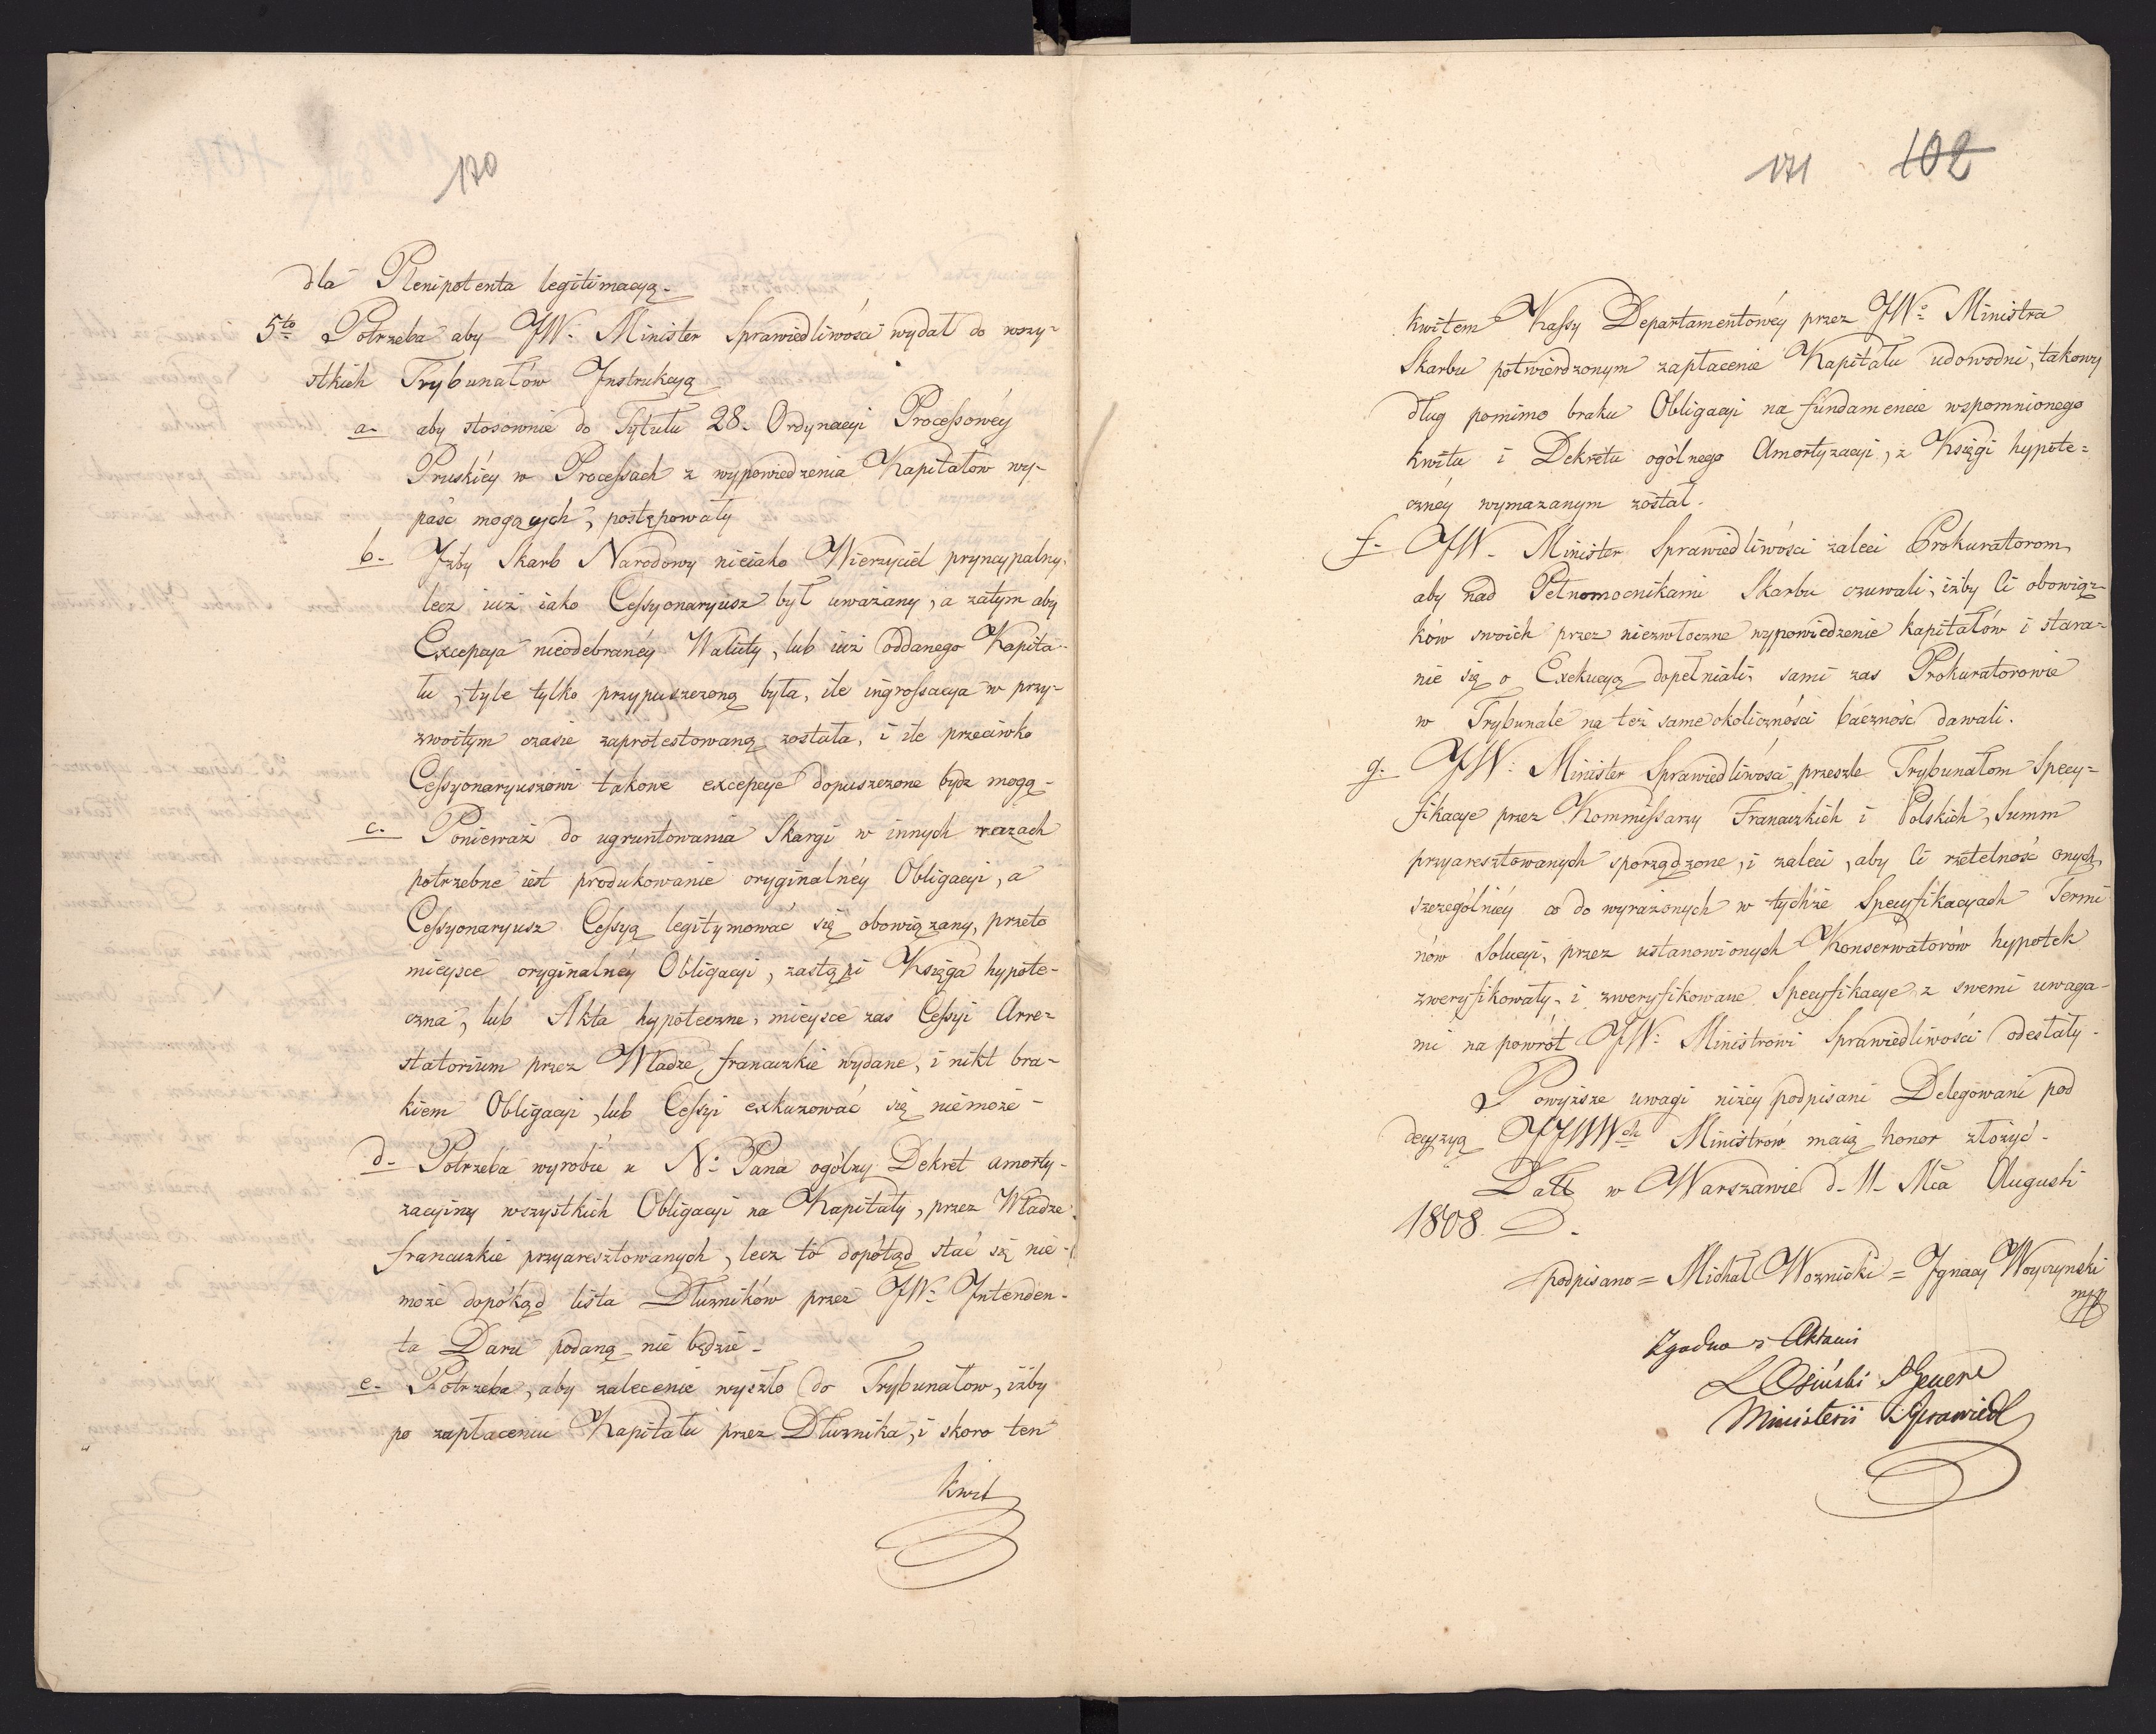 170
dla Plenipotenta legitimacyą.
5to Potrzeba aby JW: Minister Sprawiedliwości wydał do wszy-
stkich Trybunałów Instrukcyą
a. aby stosownie do Tytułu 28. Ordynacyi Processowéy
Pruskiéy w Processach z wypowiedzenia Kapitałów wy-
paść mogących, postępowały
b. Jżby Skarb Narodowy nieiako Wierzyciel pryncypalny,
lecz iuż iako Cessyonaryusz był uważany, a zatym aby
Excepcya nieodebranéy Waluty, lub iuż oddanego Kapita-
łu, tyle tylko przypuszczoną była, ile ingrossacya w przy-
zwoitym czasie zaprotestowaną została, i ile przeciwko
Cessyonaryuszowi takowe excepcye dopuszczone bydź mogą.
c. Ponieważ do ugruntowania Skargi w innych razach
potrzebne iest produkowanie oryginalnéy Obligacyi, a
Cessyonaryusz Cessyą legitymować się obowiązany, przeto
mieysce oryginalnéy Obligacyi, zastąpi Księga hypote-
czna, lub Akta hypoteczne, mieysce zaś Cessyi Arre-
statorium przez Władze francuzkie wydane, i nikt bra-
kiem Obligacyi, lub Cessyi exkuzować się niemoże.
d. Potrzeba wyrobić u N: Pana ogólny Dekret amorty-
zacyiny wszystkich Obligacyi na Kapitały, przez Władze
francuzkie przyaresztowanych, lecz to dopótąd stać się nie-
może dopókąd lista Dłużników przez JW: Intenden-
ta Daru podaną nie będzie.
e. Potrzeba, aby zalecenie wyszło do Trybunałów, iżby
po zapłaceniu Kapitału przez Dłużnika, i skoro ten
kwit
171 102
kwitem Kassy Departamentowéy przez JW: Ministra
Skarbu potwierdzonym zapłacenie Kapitału udowodni, takowy
dług pomimo braku Obligacyi na fundamencie wspomnionego
kwitu i Dekretu ogólnego Amortyzacyi, z Księgi hypote-
cznéy wymazanym został.
f. JW. Minister Sprawiedliwości zaleci Prokuratorom,
aby nad Pełnomocnikami Skarbu czuwali, iżby Ci obowiąz-
ków swoich przez niezwłoczne wypowiedzenie kapitałów i stara-
nie się o Exekucyą dopełniali, sami zas Prokuratorowie
w Trybunale na też same okoliczności baczność dawali.
g. JW: Minister Sprawiedliwości przeszle Trybunałom Specy-
fikacye przez Kommissarzy Francuzkich i Polskich, Summ
przyaresztowanych sporządzone, i zaleci, aby Ci rzetelność onych,
szczególniéy co do wyrażonych w tychże Specyfikacyach Termi
nów Solucyi, przez ustanowionych Konserwatorów hypotek
zweryfikowały, i zweryfikowane Specyfikacye z swemi uwaga-
mi na powrót JW: Ministrowi Sprawiedliwości odesłały.
Powyższe uwagi niżéy podpisani Delegowani pod
decyzyą JJWWch Ministrów maią honor złożyć.
Datt w Warszawie d. 11. Mca Augusti
1808
podpisano = Michał Woznicki = Jgnacy Woyczynski
mpp
Zgodno z Aktami
L Osiński S Gener
Ministerii Sprawiedl